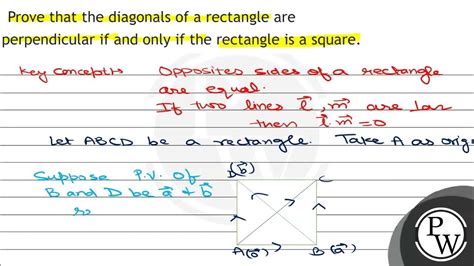 Prove that the diagonals of a rectangle are
perpendicular if and only if the rectangle is a square.
Key concepts Opposites sides of a rectangle
are equal.
If two lines l⃗, m⃗ are ⊥ar
then l⃗. m⃗ =0
Let ABCD be a rectangle. Take A as orig
Suppose P.V. of
B and D be a⃗ & b⃗
D(b⃗) C
A(0⃗) B (a⃗)
P
W